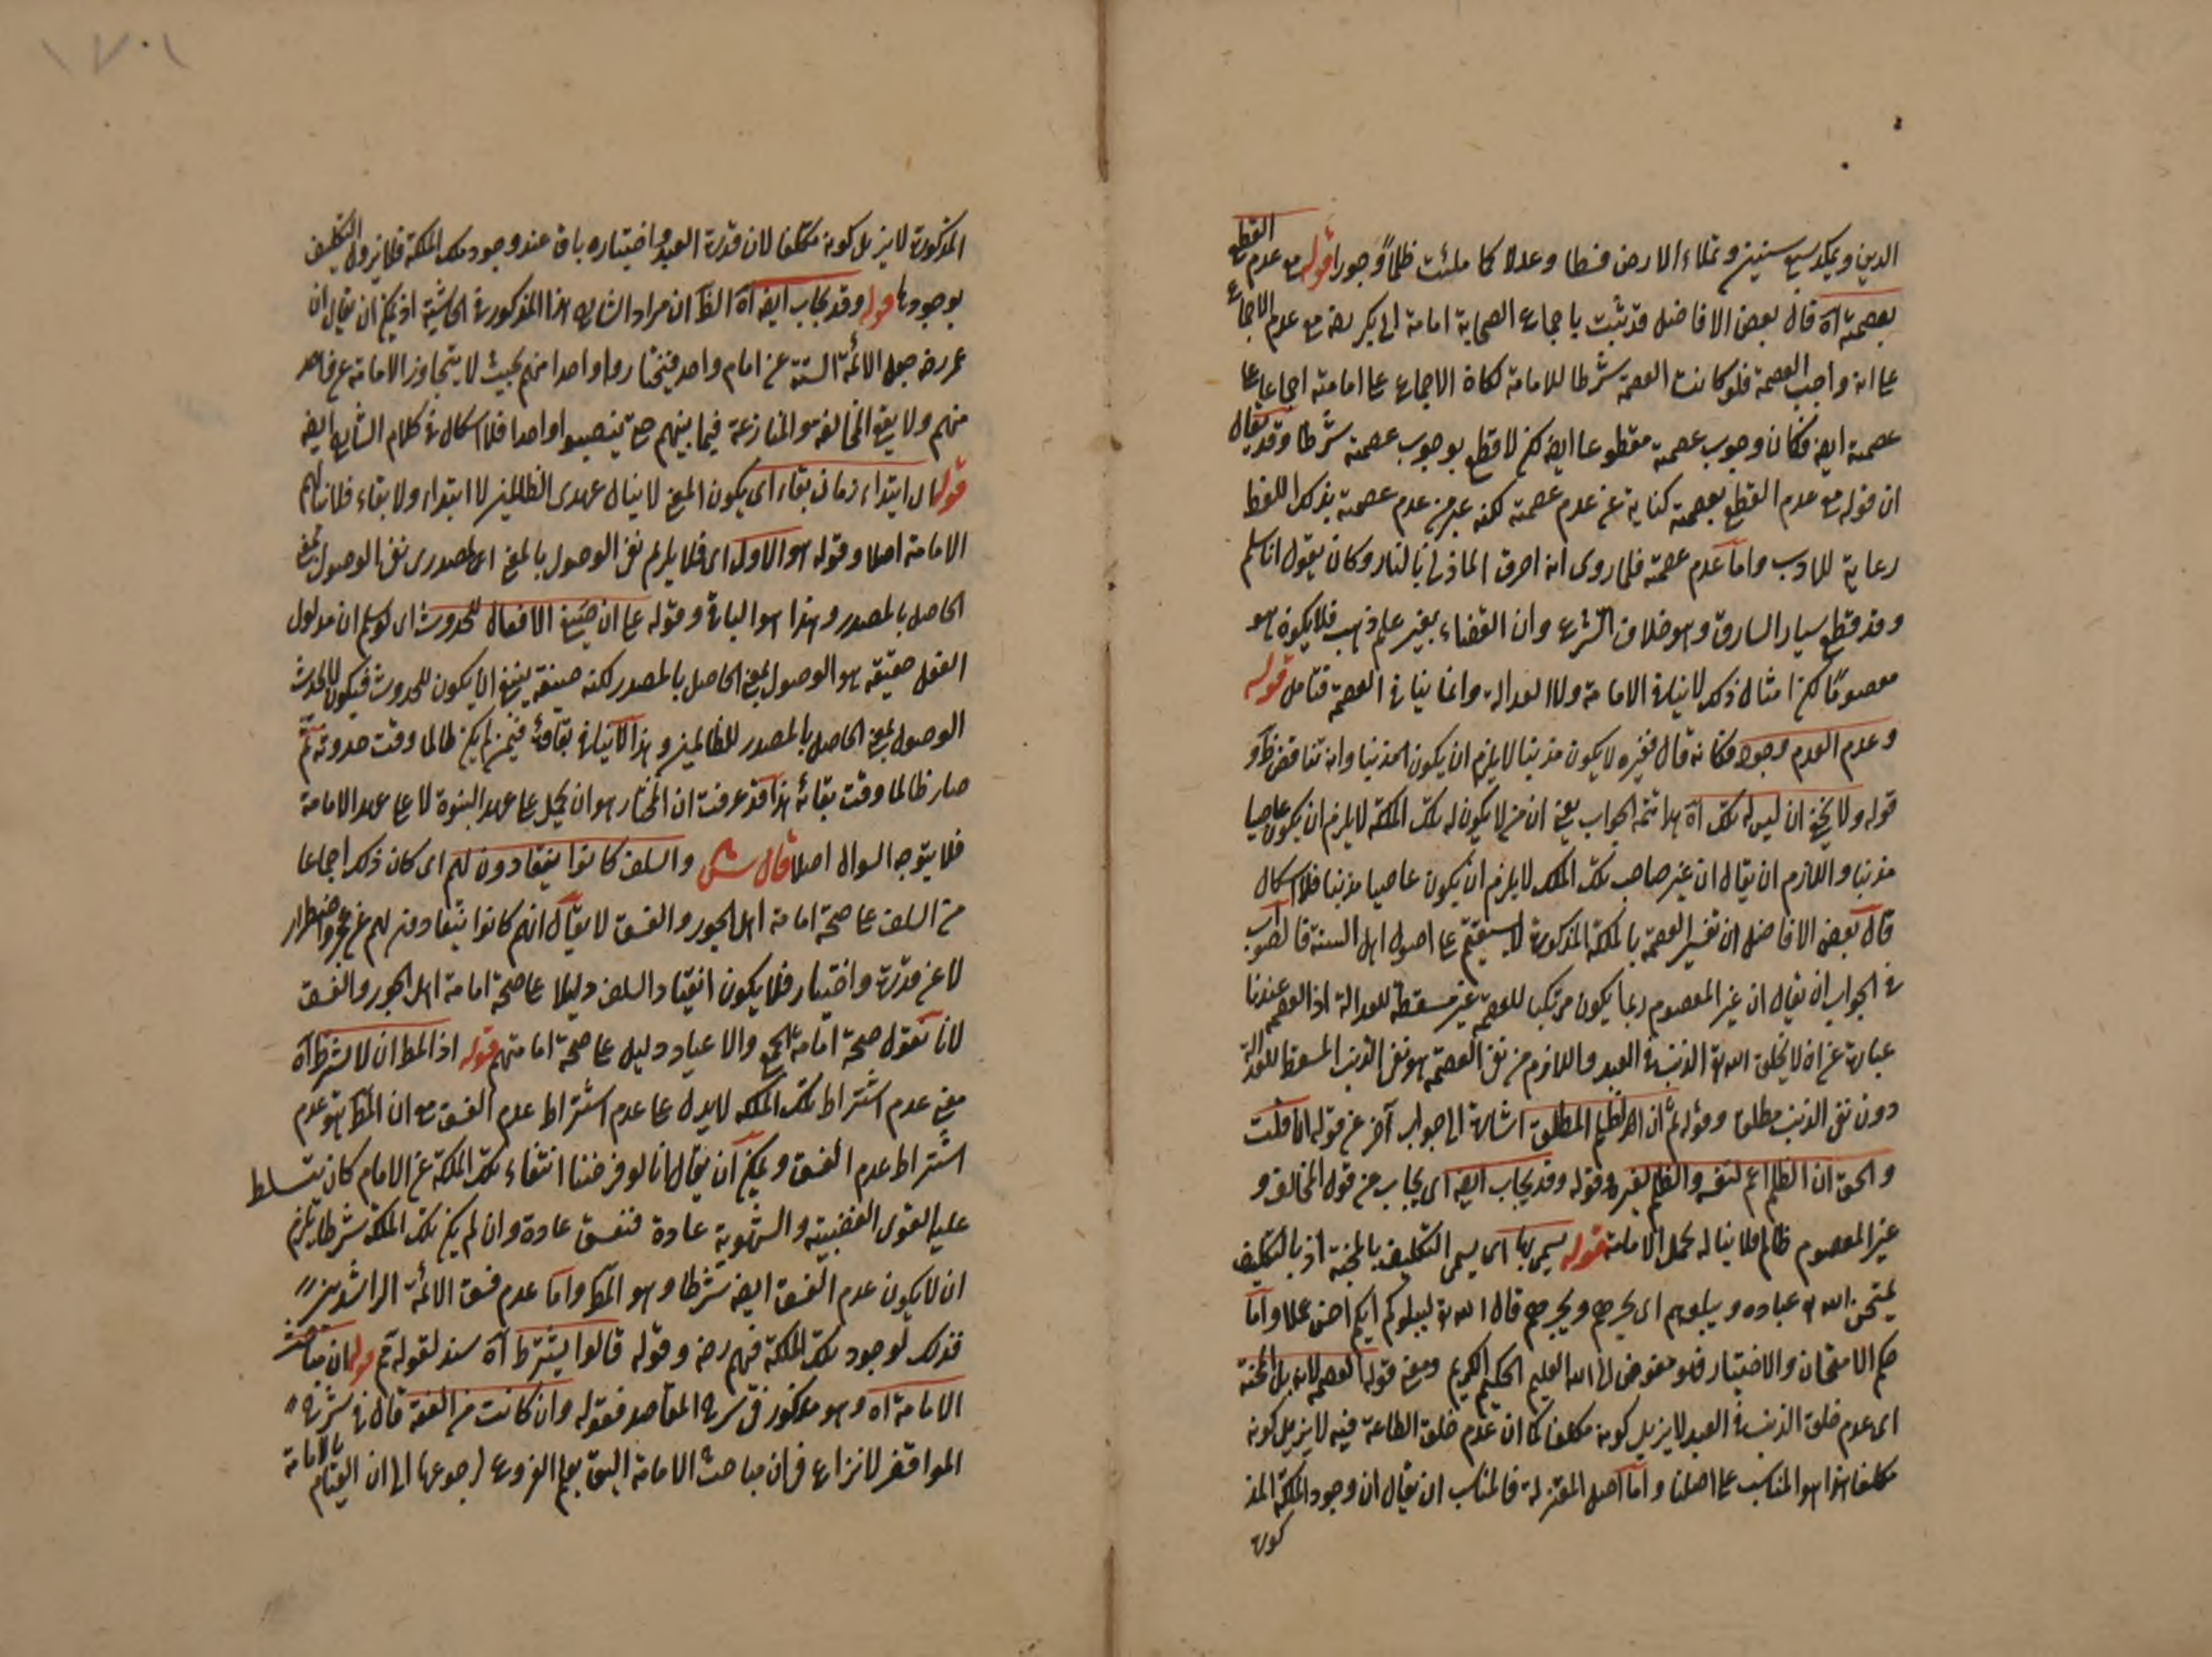 الدين ويمكث سبع سنين وتملاء الارض قسطا وعدلا كما ملئت ظلما وجورا قوله مع عدم القطع
بعصمته آه قال بعض الافاضل قد يثبت باجماع الصحابة امامة ابى بكر رضه مع عدم الاجماع
على انه واجب العصمة فلو كانت العصمة شرطا للامامة لكان الاجماع على امامته اجماعا على
عصمته ايضه فكان وجوب عصمته مقطوعا ايضه لكن لا قطع بوجوب عصمته شرطا وقد يقال
ان قوله مع عدم القطع بعصمته كناية عن عدم عصمته لكنه عبر عن عدم عصمته بذلك اللفظ
رعاية للادب واما عدم عصمته فلما روى انه احرق بالنار وكان يقول انا مسلم
وقد قطع يسار السارق وهو خلاف الشرع وان القضاء بغير علم ذنب فلا يكون هو
معصوما لكن امثال ذلك لا ينافى الامامة ولا العدالة وانما ينافى العصمة فتامل قوله
وعدم العدم وجود فكانه قال فغيره لا يكون مذنبا لا يلزم ان يكون مذنبا وانه تناقض ظ و
قوله ولا يخفى ان ليس له تلك آه هذا تتمة الجواب يعنى ان من لا يكون له تلك الملكة لا يلزم ان يكون عاصيا
مذنبا واللازم ان يقال ان غير صاحب تلك الملكة لا يلزم ان يكون عاصيا مذنبا فلا اشكال
قال بعض الافاضل ان تفسير العصمة بالملكة المذكورة لا يستقيم على اصول اهل السنة فالصواب
فى الجواب ان يقال ان غير المعصوم ربما يكون مرتكبا للمعصية غير مسقطة للعدالة اذ العصمة عندنا
عبارة عن ان لا يخلق الله تع الذنب فى العبد واللازم من نفى العصمة هو نفى الذنب المسقط للعدالة
دون نفى الذنب مطلقا وقوله ثم ان اهـ الظلم المطلق اشارة الى جواب آخر عن قوله ان قلت
والحق ان الظلم اعم لنفسه والظلم لغيره وقوله وقد يجاب ايضه اى يجاب عن قول المخالف و
غير المعصوم ظالم فلا يناله محمل الامامة قوله يسمى بها اى يسمى التكليف بالمحنة اذ بالتكليف
يمتحن الله تع عباده ويبلوهم اى يخرجهم ويجربهم قال الله تع ليبلوكم ايكم احسن عملا واما
حكم الامتحان والاختبار فهو مفوض الى الله العليم الحكيم الكريم ومعنى قوله العصمة لا تزيل المحنة
اى عدم خلق الذنب فى العبد لا يزيل كونه مكلفا كما ان عدم خلق الطاعة فيه لا يزيل كونه
مكلفا هذا هو المناسب على اصلنا واما اصل المعتزلة فالمناسب ان يقال ان وجود الملكة المذ
كورة
المذكورة لا يزيل كونه مكلفا لان قدرة العبد واختياره باق عند وجود تلك الملكة فلا يزول التكليف
بوجودها قوله وقد يجاب ايضه آه الظ ان مراد الشارح هذا المذكور فى الحاشية اذ يمكن ان يقال ان
عمر رضه جعل الائمة الستة عن امام واحد فيختاروا واحدا منهم بحيث لا يتجاوز الامامة عن واحد
منهم ولا يقع المخالفة والمنازعة فيما بينهم حتى ينصبوا واحدا فلا اشكال فى كلام الشارح ايضه
قوله ال ابتداء زمان بقاء اى يكون المعنى لا ينال عهدى الظالمين لا ابتداء ولا بقاء فلا ينالهم
الامامة اصلا وقوله هو الاول اى فلا يلزم نفى الوصول بالمعنى المصدرى نفى الوصول بمعنى
الحاصل بالمصدر وهذا هو الباقى وقوله على ان صيغ الافعال للحدوث اى لو سلم ان مدلول
الفعل حقيقة هو الوصول بمعنى الحاصل بالمصدر لكنه صيغة ينبغى ان يكون للحدوث فيكون لحدوث
الوصول بمعنى الحاصل بالمصدر للظالمين وهذا لا ينافى بقاءه فيمن لم يكن ظالما وقت حدوثه ثم
صار ظالما وقت بقائه هذا قد عرفت ان المختار هو ان يحمل على عهد النبوة لا على عهد الامامة
فلا يتوجه السوال اصلا قال ش والسلف كانوا ينقادون لهم اى كان ذلك اجماعا
من السلف على صحة امامة اهل الجور والفسق لا يقال انهم كانوا ينقادون لهم عن عجز واضطرار
لا عن قدرة واختيار فلا يكون انقياد السلف دليلا على صحة امامة اهل الجور والفسق
لانا نقول صحة اقامة الجمع والاعياد دليل على صحة امامتهم قوله اذ المط ان لا يشترط آه
معنى عدم اشتراط تلك الملكة لا يدل على عدم اشتراط عدم الفسق مع ان المط هو عدم
اشتراط عدم الفسق ويمكن ان يقال انا لو فرضنا انتفاء تلك الملكة عن الامام كان يتسلط
عليه القوى الغضبية والشهوية عادة فتفسق عادة وان لم يكن تلك الملكة شرطا يلزم
ان لا يكون عدم الفسق ايضه شرطا وهو المط واما عدم فسق الائمة الراشدين
فذلك لوجود تلك الملكة فيهم رضه وقوله قالوا يشترط آه سند لقوله ثم قوله ان مباحث
الامامة اه وهو مذكور فى شرح المقاصد فقوله وان كانت من الفقه قال فى شرح
المواقف لا نزاع فى ان مباحث الامامة اليق بعلم الفروع لرجوعها الى ان القيام بالامامة